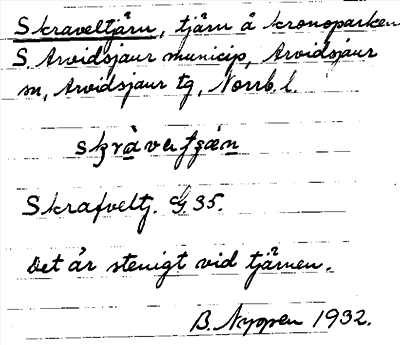 Skraveltjärn, tjärn å kronoparken
S. Arvidsjaur municip, Arvidsjaur
sn, Arvidsjaur tg, Norrb. l.
Skrafveltj. G 35.
Det är stenigt vid tjärnen.
B. Nyppen 1932.